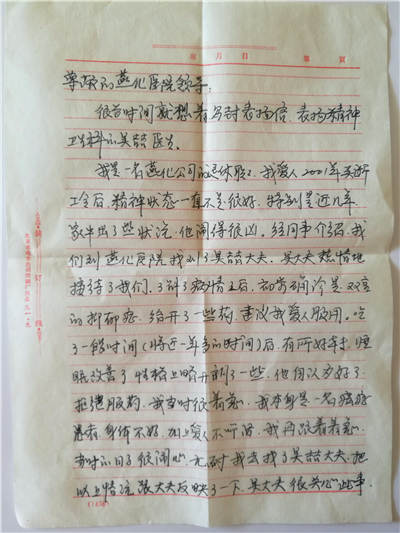 年月日 第 頁
尊敬的燕化医院领导:
很早时间就想着写封表扬信,表扬精神
卫生科的吴喆医生。
我是一名燕化公司的退休职工,我爱人2001年买断
工令后,精神状态一直不是很好,特别是近几年,
家中出了些状况,他闹得很凶,经同事介绍,我
们到燕化医院找到了吴喆大夫,吴大夫热情地
接待了我们,了解病情之后,初步确诊是
的抑郁症,给开了一些药,建议我爱人服用。吃
了一段时间(将近一年多的时间)后,有所好转,睡
眠改善了性格上略开朗了一些,他自以为好了,
拒绝服药,我当时很着急,我本身是一名癌症
患者,身体不好,加上爱人不听话,我两头着急,
那时的日子很闹心,无耐我去找了吴喆大夫,把
以上情况跟大夫反映了一下,吴大夫很关心此事,
装订线